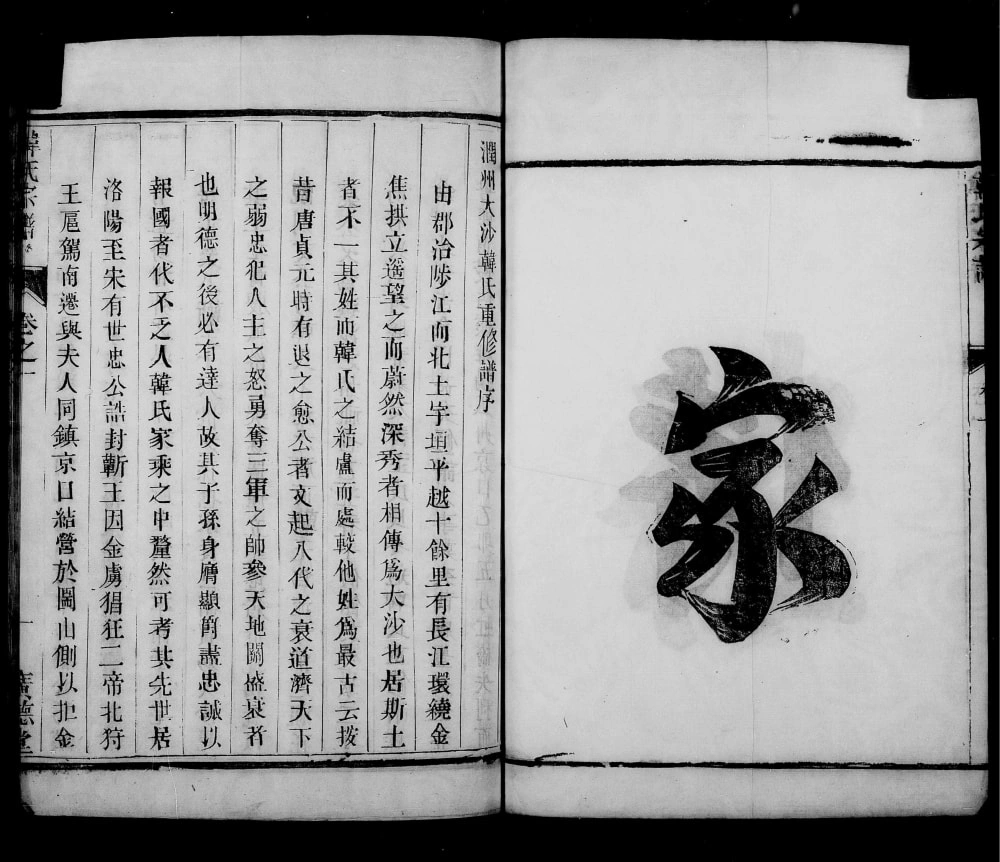 家
潤州大沙韓氏重修譜序
由郡治陟江而北土宇垣平越十餘里有長江環繞金
焦拱立遥望之而蔚然深秀者相傳爲大沙也居斯土
者不一其姓而韓氏之結廬而處較他姓爲最古云按
昔唐貞元時有退之愈公者文起八代之衰道濟天下
之弱忠犯人主之怒勇奪三軍之帥參天地關盛衰者
也明德之後必有達人故其子孫身膺顯爵盡忠誠以
報國者代不乏人韓氏家乘之中釐然可考其先世居
洛陽至宋有世忠公誥封蘄王因金虜猖狂二帝北狩
王扈駕南遷與夫人同鎮京口結營於圌山側以拒金
韓氏宗譜
卷之一
一